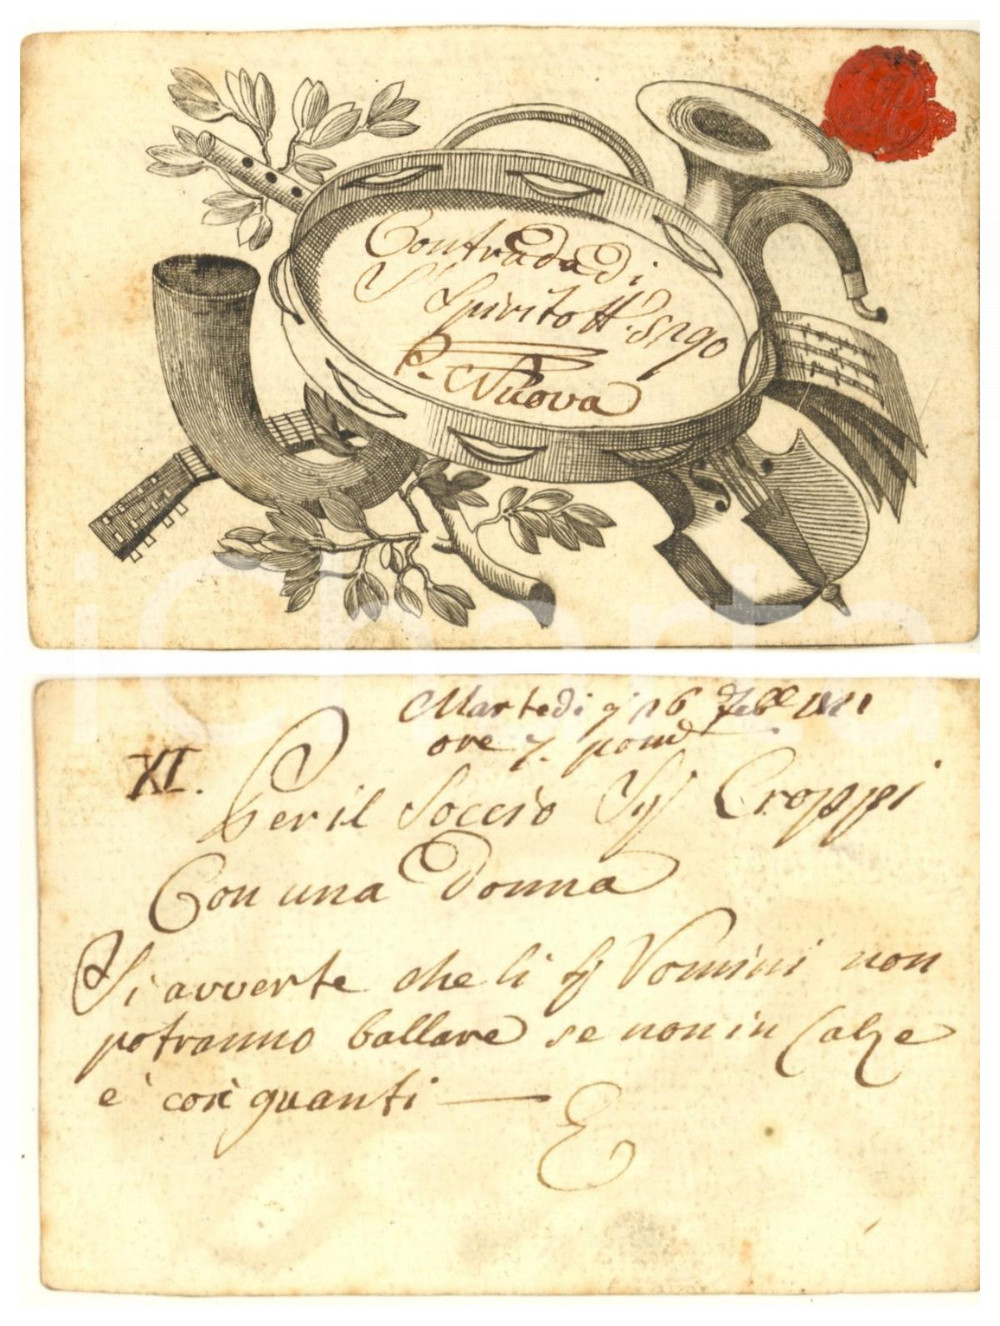 Contrada di
S. Spirito N. 5290
P. Nuova
Martedi g 16 Febb
ore 7. pomd
XI.
Per il Soccio Sig Croppi
Con una Donna
Si avverte che li Sig Vomini non
potranno ballare se non in Calze
e coi guanti
iCharta